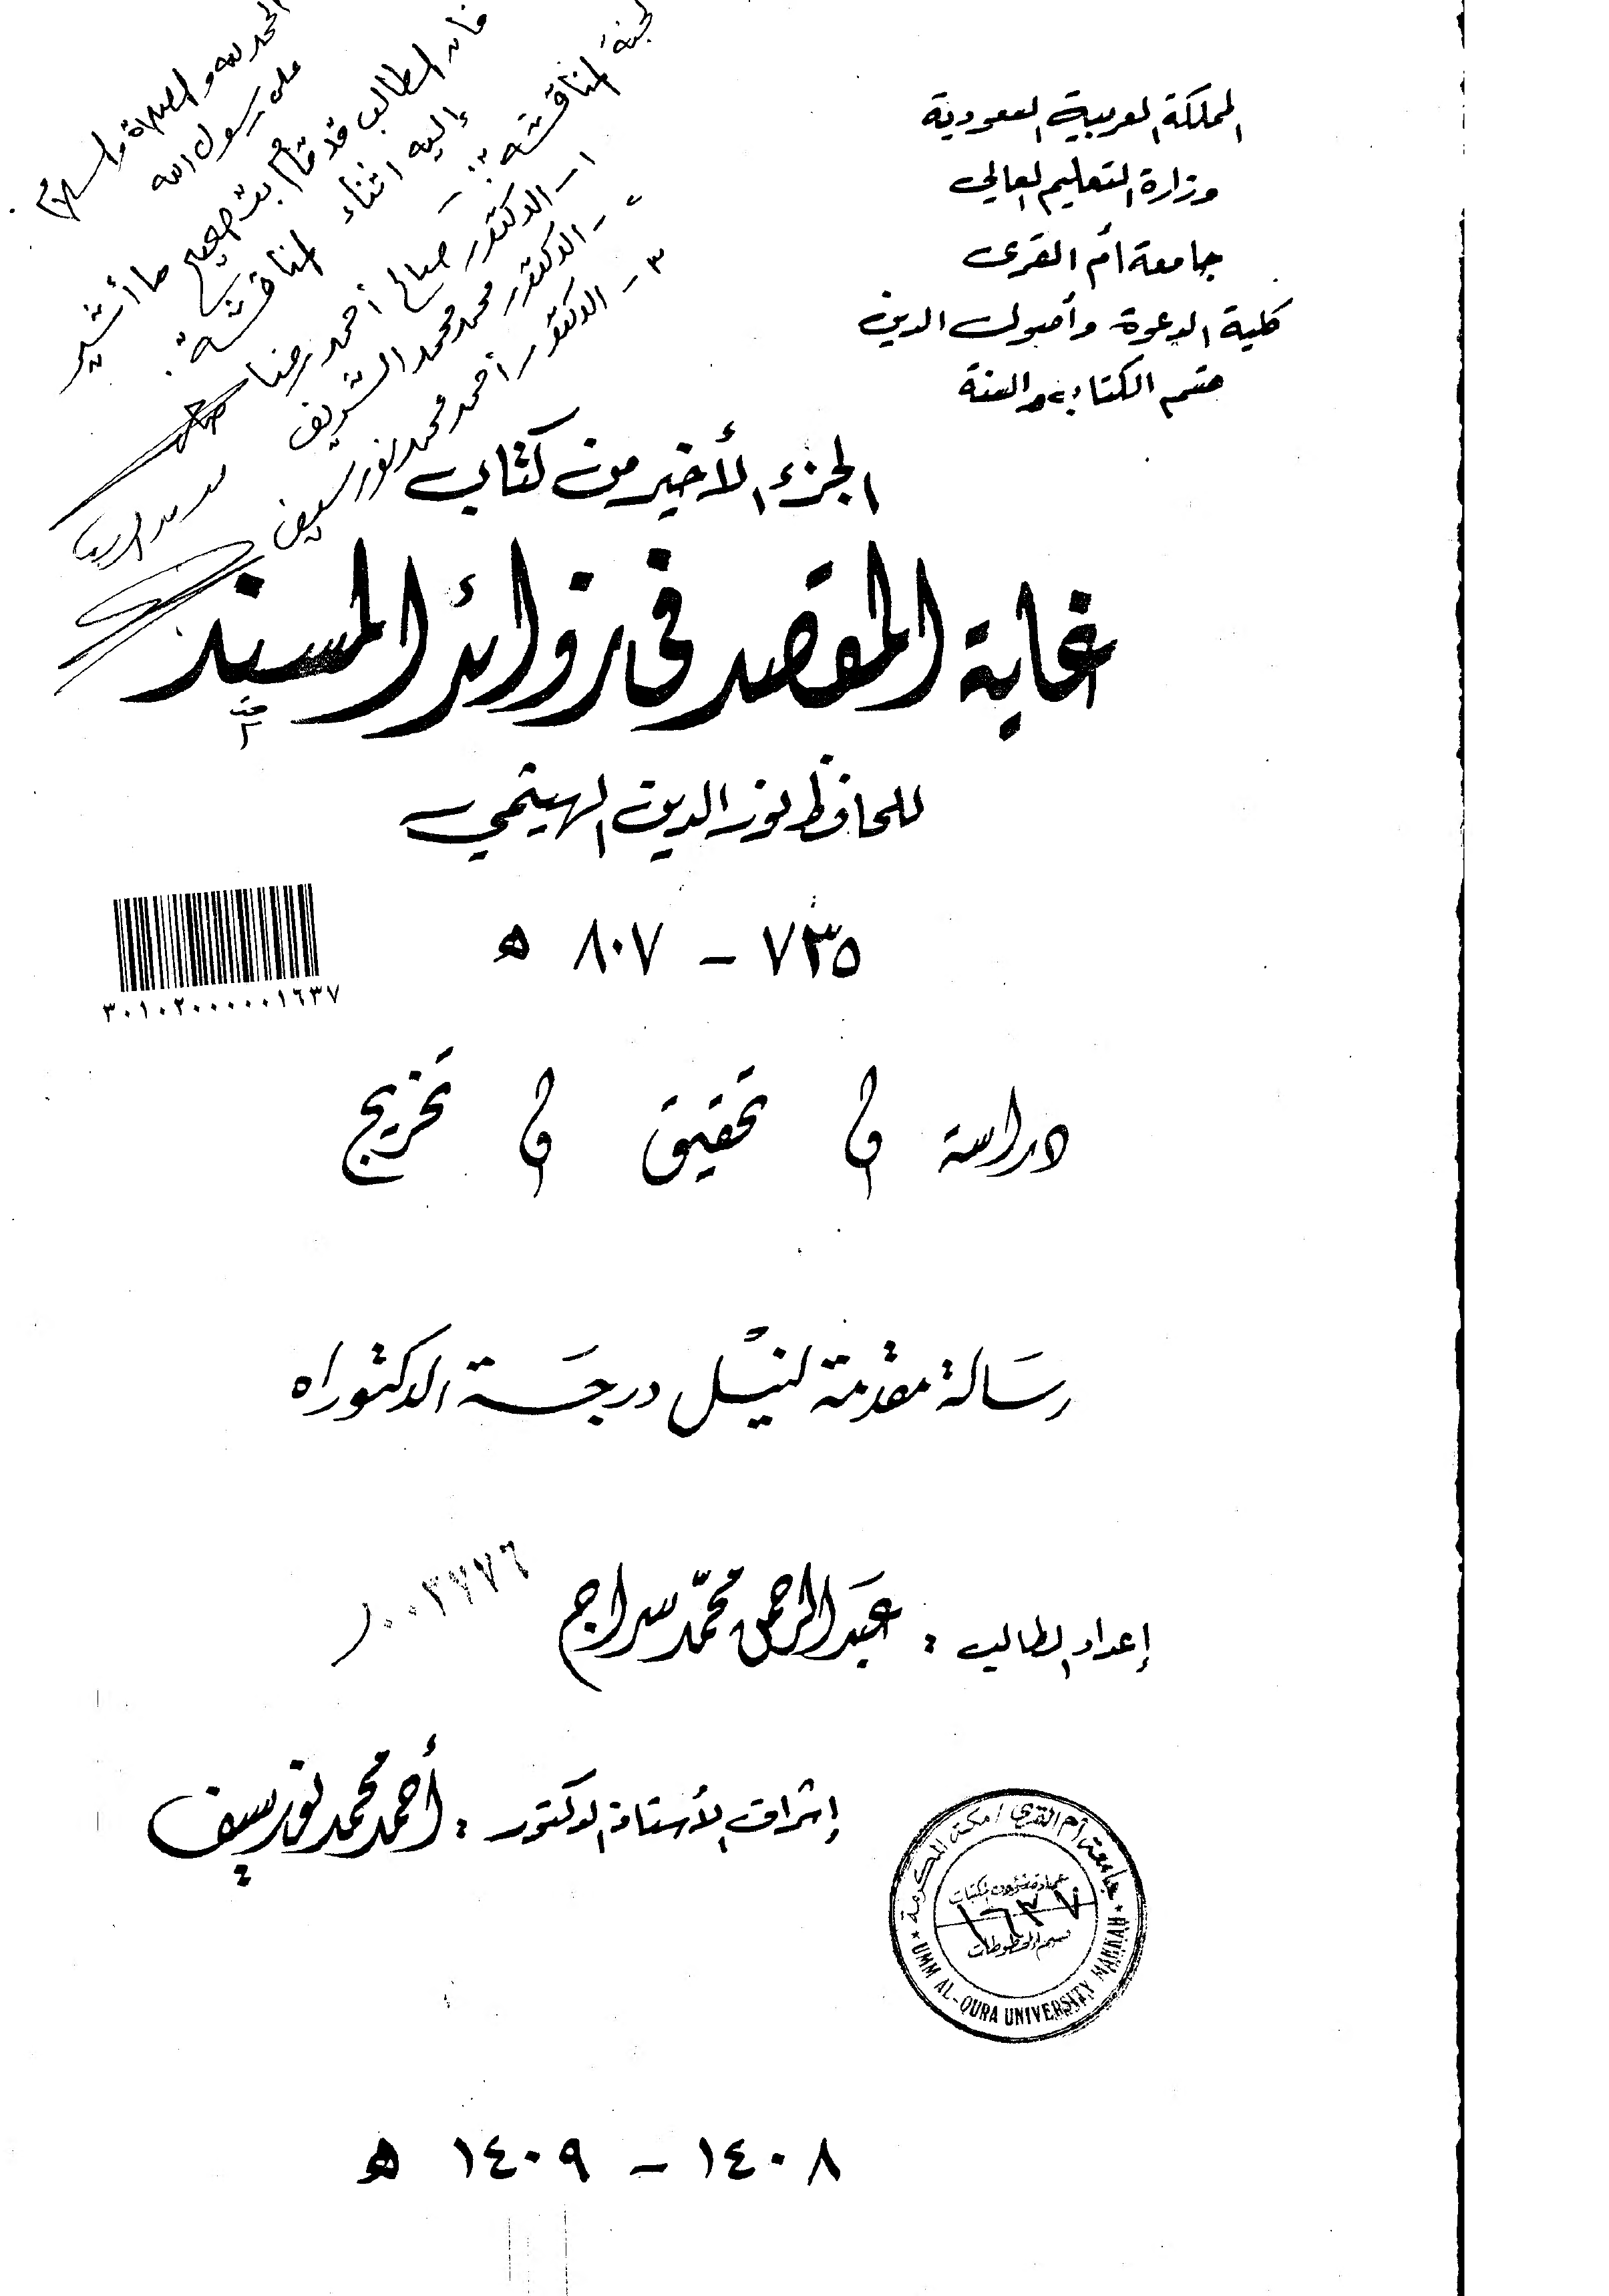 المملكة العربية السعودية
وزارة التعليم العالي
جامعة أم القرى
كلية الدعوة وأصول الدين
قسم الكتاب والسنة
الحمد لله والصلاة والسلام
على رسول الله
فإن الطالب قد قام بتصحيح ما أشير
إليه اثناء المناقشة.
لجنة المناقشة:
١- الدكتور صالح أحمد رضا
٢- الدكتور محمد محمد الشريف
٣- الدكتور أحمد محمد نور سيف
الجزء الأخير من كتاب
غاية المقصد في زوائد المسند
للحافظ نور الدين الهيثمي
٧٣٥ - ٨٠٧ ه
٣٠١٠٢٠٠٠٠٠١٦٣٧
دراسة تحقيق تخريج
رسالة مقدمة لنيل درجة الدكتوراه
إعداد الطالب: عبد الرحمن محمد سراج
إشراف الأستاذ الدكتور: أحمد محمد نور سيف
جامعة أم القرى / مكة المكرمة
عمادة شؤون المكتبات
١٦٣٧
قسم المخطوطات
UMM AL-QURA UNIVERSITY MAKKAH
١٤٠٨ - ١٤٠٩ ه